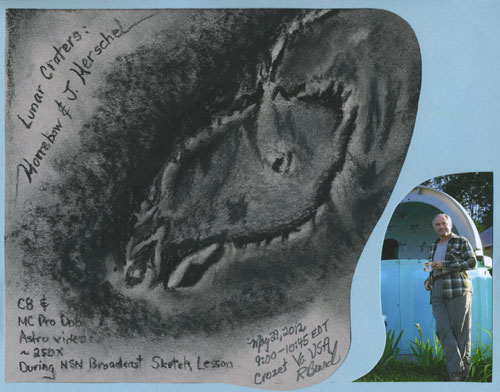 Lunar Craters:
Horrebow & J. Herschel
C8 &
MC Pro Dob
Astro video
~ 250X
During NSN Broadcast Sketch Lesson
May 29, 2012
9:00-10:45 EDT
Crozet Va USA